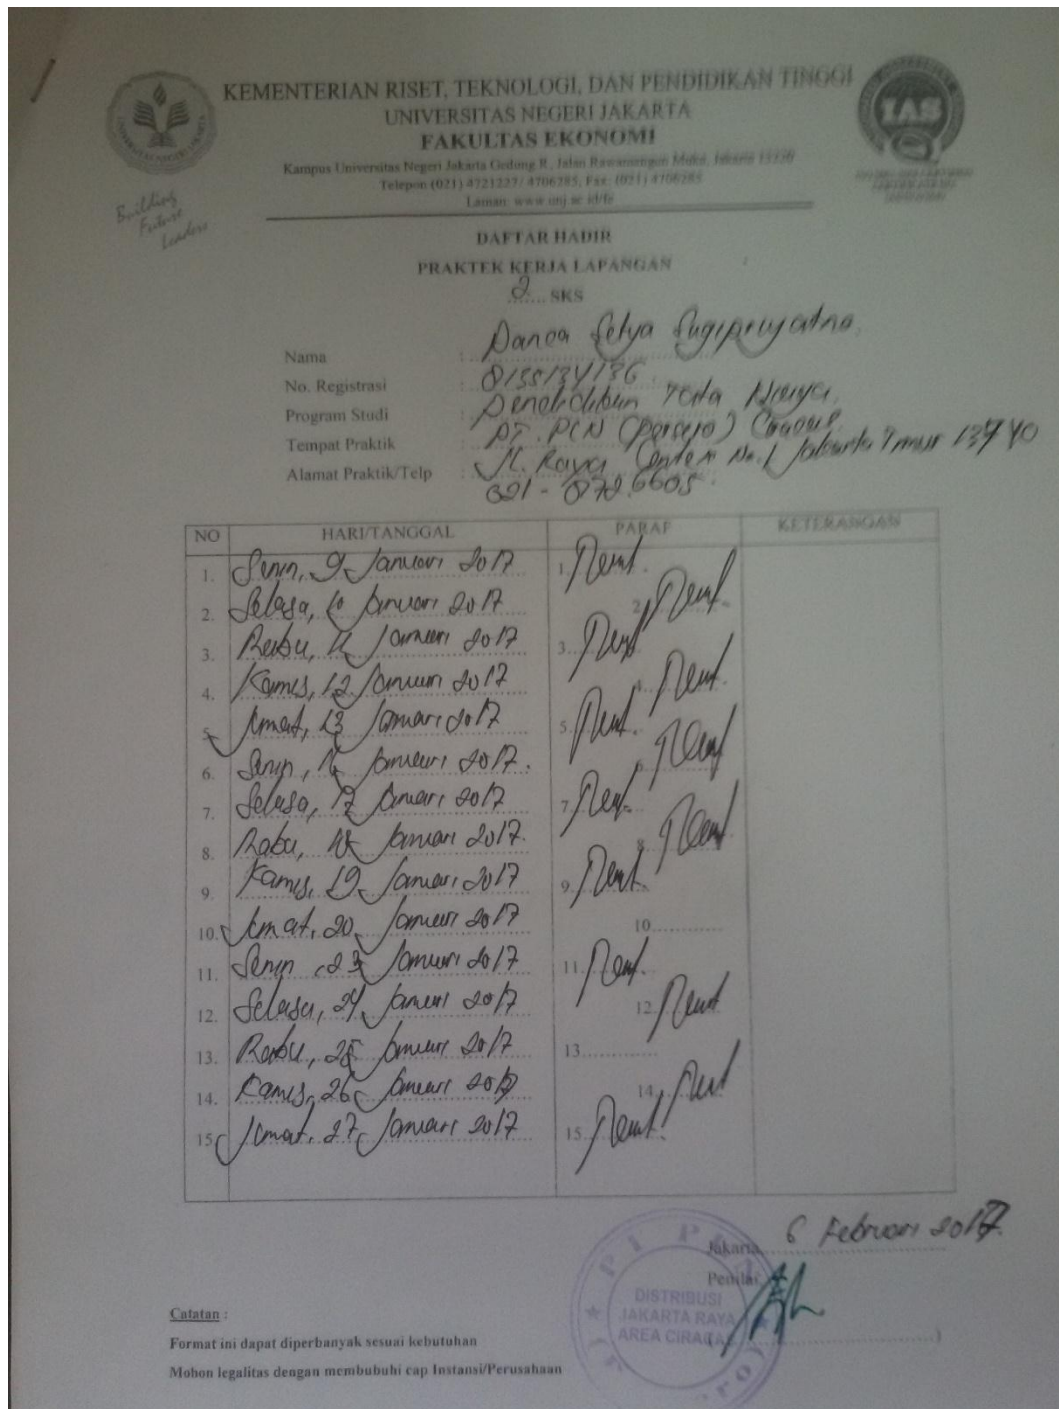 KEMENTERIAN RISET, TEKNOLOGI, DAN PENDIDIKAN TINGGI
UNIVERSITAS NEGERI JAKARTA
FAKULTAS EKONOMI
Kampus Universitas Negeri Jakarta Gedung R, Jalan Rawamangun Muka, Jakarta 13220
Telepon (021) 4721227/ 4706285, Fax: (021) 4706285
Laman: www.unj.ac.id/fe
IAS
Building
Future
Leaders
DAFTAR HADIR
PRAKTEK KERJA LAPANGAN
2 SKS
Nama :
No. Registrasi : 8135134136
Program Studi : Pendidikan Tata Niaga
Tempat Praktik : PT. PLN (Persero) Ciracas
Alamat Praktik/Telp : Jl. Raya No. 1 Jakarta Timur 13740
021 -
NO HARI/TANGGAL PARAF KETERANGAN
1. Senin, 9 Januari 2017 1.
2. Selasa, 10 Januari 2017 2.
3. Rabu, 11 Januari 2017 3.
4. Kamis, 12 Januari 2017 4.
5. Jumat, 13 Januari 2017 5.
6. Senin, 16 Januari 2017. 6.
7. Selasa, 17 Januari 2017 7.
8. Rabu, 18 Januari 2017. 8.
9. Kamis, 19 Januari 2017 9.
10. Jumat, 20 Januari 2017 10.
11. Senin, 23 Januari 2017 11.
12. Selasa, 24 Januari 2017 12.
13. Rabu, 25 Januari 2017 13.
14. Kamis, 26 Januari 2017 14.
15. Jumat, 27 Januari 2017 15.
Jakarta, 6 Februari 2017.
Penilai,
DISTRIBUSI
JAKARTA RAYA
AREA CIRACAS
Catatan :
Format ini dapat diperbanyak sesuai kebutuhan
Mohon legalitas dengan membubuhi cap Instansi/Perusahaan